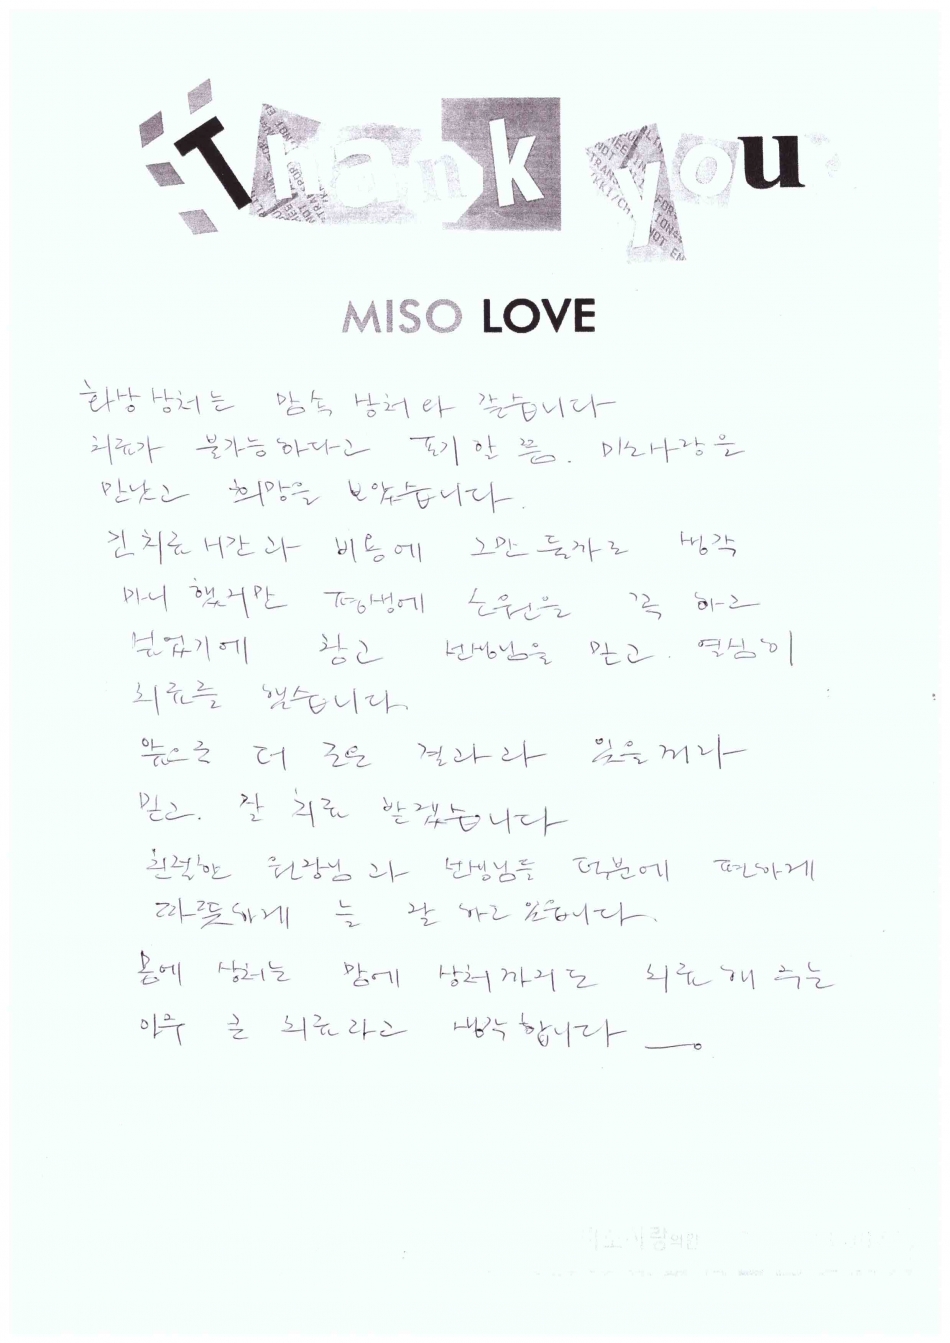 Thank you
MISO LOVE
화상상처는 맘속 상처와 같습니다
치료가 불가능하다고 포기할 쯤. 미소사랑을
만낫고 희망을 보았습니다.
긴 치료시간과 비용에 그만 둘까로 생각
마니 했지만 평생에 소원을 꼭 하고
싶었기에 참고 선생님을 믿고. 열심히
치료를 했습니다.
앞으로 더 조은 결과과 있을꺼라
믿고. 잘 치료 받겠습니다
친절한 원장님과 선생님들 덕분에 편하게
따뜻하게 늘 잘 하고 있습니다.
몸에 상처는 맘에 상처까지도 치료해 주는
아주 큰 치료라고 생각합니다